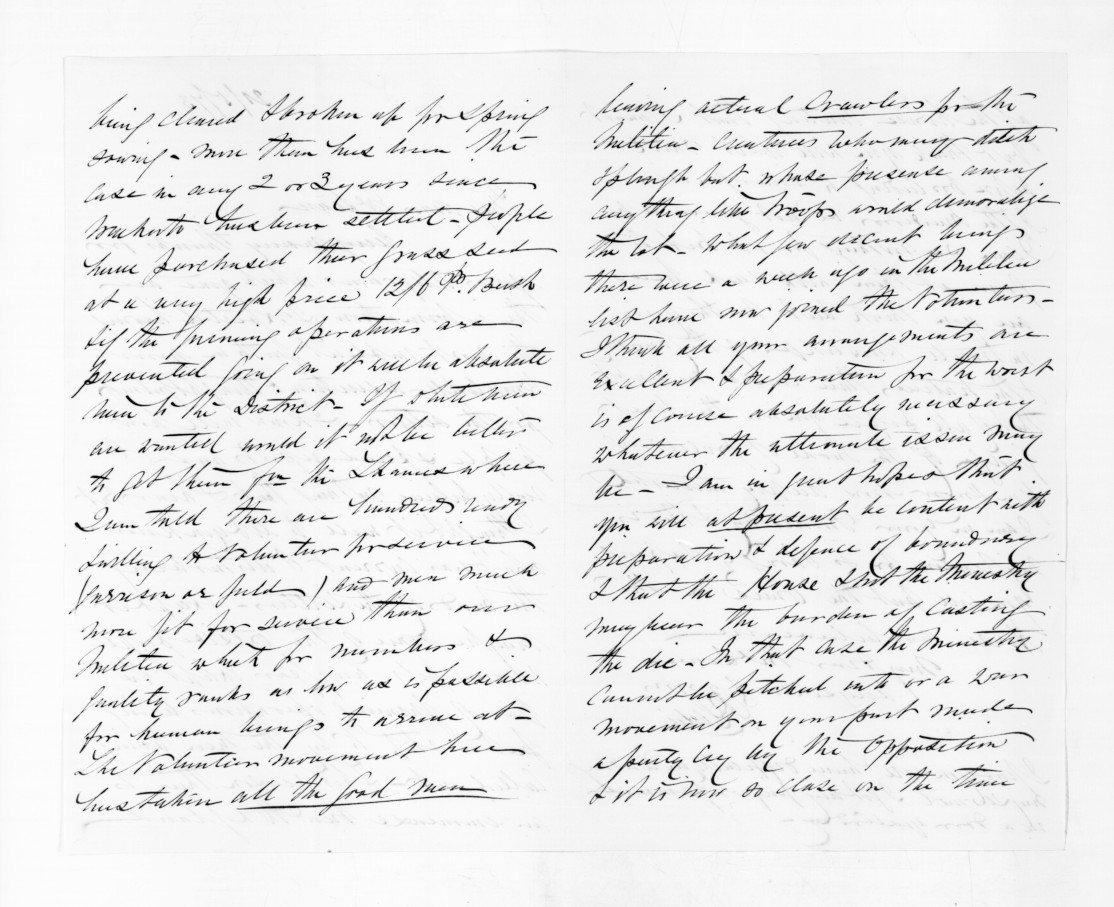 being cleared & broken up for Spring
sowing - more than has been the
case in any 2 or 3 years since
has been settled - People
have purchased their grass seed
at a very high price 12/6 Pr. Bush
& if the opening operations are
prevented going on it will be absolute
ruin to the District - If
are wanted would it not be better
to get them fm the Thames where
I am told there are hundreds ready
& willing to Volunteer for service
(garrison or field) and men much
more fit for service than our
Militia which for numbers &
quality ranks as low as is possible
for human beings to arrive at -
The Volunteer movement here
has taken all the good men
leaving actual Crawlers for the
Militia - Creatures who may ditch
& plough but whose presense among
anything like Troops would demoralize
the lot - What few decent beings
there were a week ago in the Militia
list have now joined the Volunteers -
I think all your arrangements are
Excellent & preparation for the worst
is of course absolutely necessary
whatever the ultimate issue may
be - I am in great hopes that
you will at present be content with
preparation & defence of boundary
& that the House & not the Ministry
may bear the burden of Casting
the die - In that case the Ministry
cannot be pitched into or a War
movement on your part made
a party cry by the Opposition
& it is now so close on the time